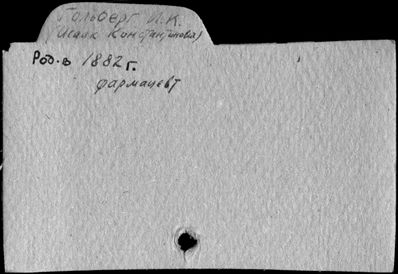 Гольберг И.К.
(Исаак Константинович)
Род. в 1882 г.
фармацевт